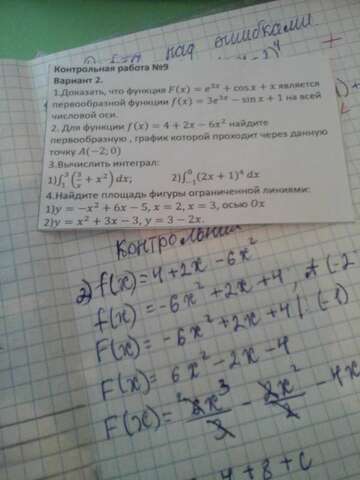 над ошибками
Контрольная работа №9
Вариант 2.
1.Доказать, что функция F(x) = e³ˣ + cos x + x является
первообразной функции f(x) = 3e³ˣ − sin x + 1 на всей
числовой оси.
2. Для функции f(x) = 4 + 2x − 6x² найдите
первообразную , график которой проходит через данную
точку A(−2; 0)
3.Вычислить интеграл:
1)∫₁³(3/x + x²) dx; 2)∫₋₁⁰(2x + 1)⁴ dx
4.Найдите площадь фигуры ограниченной линиями:
1)y = −x² + 6x − 5, x = 2, x = 3, осью Ox
2)y = x² + 3x − 3, y = 3 − 2x.
2) f(x) = 4 + 2x - 6x²
f(x) = -6x² + 2x + 4, A(-2
F(x) = -6x² + 2x + 4 | · (-1)
F(x) = 6x² - 2x - 4